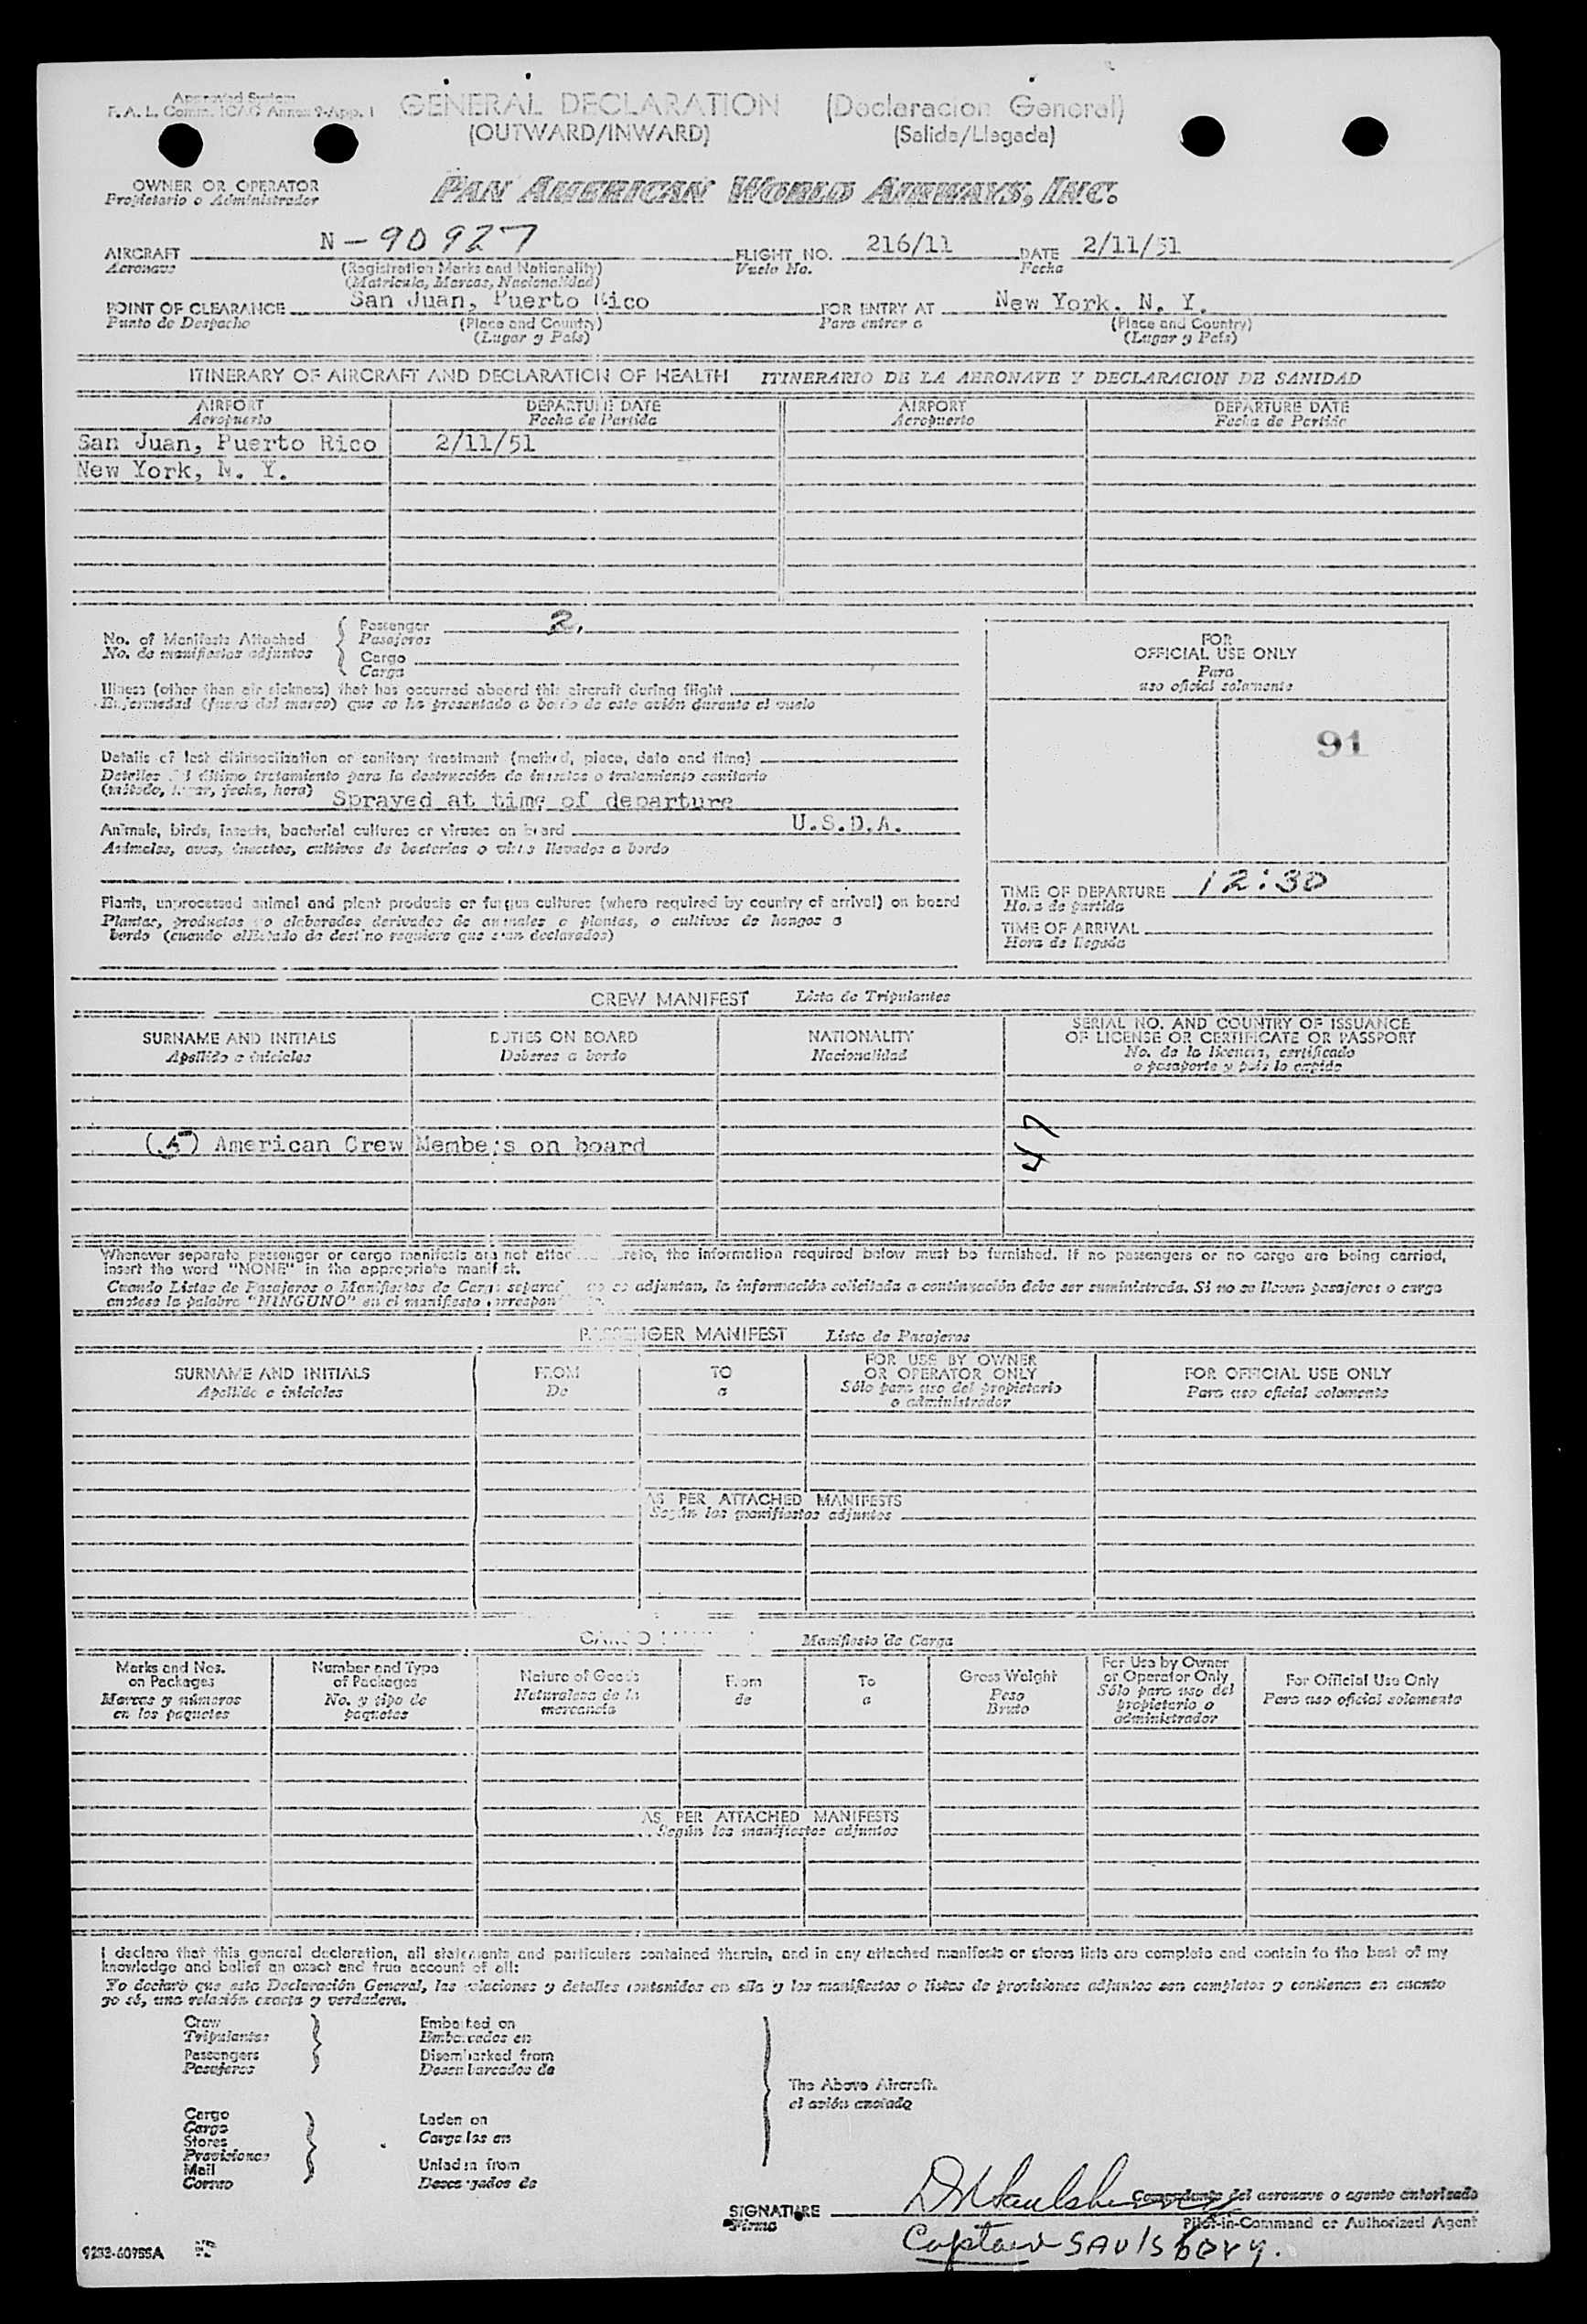 Approved System
F. A. L. Comm. ICAO Annex 9-App. 1
GENERAL DECLARATION (Declaracion General)
(OUTWARD/INWARD) (Salida/Llegada)
OWNER OR OPERATOR
Propietario o Administrador
PAN AMERICAN WORLD AIRWAYS, INC.
AIRCRAFT N-90927 FLIGHT NO. 216/11 DATE 2/11/51
Aeronave (Registration Marks and Nationality) Vuelo No. Fecha
(Matricula, Marcas, Nacionalidad)
POINT OF CLEARANCE San Juan, Puerto Rico FOR ENTRY AT New York. N. Y.
Punto de Despacho (Place and Country) Para entrar a (Place and Country)
(Lugar y País) (Lugar y País)
ITINERARY OF AIRCRAFT AND DECLARATION OF HEALTH ITINERARIO DE LA AERONAVE Y DECLARACION DE SANIDAD
AIRPORT DEPARTURE DATE AIRPORT DEPARTURE DATE
Aeropuerto Fecha de Partida Aeropuerto Fecha de Partida
San Juan, Puerto Rico 2/11/51
New York, N. Y.
No. of Manifests Attached
No. de manifiestos adjuntos
Passenger 2.
Pasajeros
Cargo
Carga
Illness (other than air sickness) that has occurred aboard this aircraft during flight
Enfermedad (fuera del mareo) que se ha presentado a bordo de este avión durante el vuelo
Details of last disinsectization or sanitary treatment (method, place, date and time)
Detalles del último tratamiento para la destrucción de insectos o tratamiento sanitario
(método, lugar, fecha, hora) Sprayed at time of departure
Animals, birds, insects, bacterial cultures or viruses on board U.S.D.A.
Animales, aves, insectos, cultivos de bacterias o virus llevados a bordo
Plants, unprocessed animal and plant products or fungus cultures (where required by country of arrival) on board
Plantas, productos no elaborados derivados de animales o plantas, o cultivos de hongos a
bordo (cuando el Estado de destino requiera que sean declarados)
FOR
OFFICIAL USE ONLY
Para
uso oficial solamente
91
TIME OF DEPARTURE 12:30
Hora de partida
TIME OF ARRIVAL
Hora de llegada
CREW MANIFEST Lista de Tripulantes
SURNAME AND INITIALS DUTIES ON BOARD NATIONALITY SERIAL NO. AND COUNTRY OF ISSUANCE
OF LICENSE OR CERTIFICATE OR PASSPORT
Apellido e iniciales Deberes a bordo Nacionalidad No. de la licencia, certificado
o pasaporte y país lo expide
47
(5) American Crew Members on board
Whenever separate passenger or cargo manifests are not attached hereto, the information required below must be furnished. If no passengers or no cargo are being carried,
insert the word "NONE" in the appropriate manifest.
Cuando Listas de Pasajeros o Manifiestos de Carga separados no se adjuntan, la información solicitada a continuación debe ser suministrada. Si no se llevan pasajeros o carga
anótese la palabra "NINGUNO" en el manifiesto correspondiente.
PASSENGER MANIFEST Lista de Pasajeros
SURNAME AND INITIALS FROM TO FOR USE BY OWNER
OR OPERATOR ONLY FOR OFFICIAL USE ONLY
Apellido e iniciales De a Sólo para uso del propietario
o administrador Para uso oficial solamente
AS PER ATTACHED MANIFESTS
Según los manifiestos adjuntos
CARGO Manifiesto de Carga
Marks and Nos.
on Packages
Marcas y números
en los paquetes
Number and Type
of Packages
No. y tipo de
paquetes
Nature of Goods
Naturaleza de la
mercancía
From
de
To
a
Gross Weight
Peso
Bruto
For Use by Owner
or Operator Only
Sólo para uso del
propietario o
administrador
For Official Use Only
Para uso oficial solamente
AS PER ATTACHED MANIFESTS
Según los manifiestos adjuntos
I declare that this general declaration, all statements and particulars contained therein, and in any attached manifests or stores lists are complete and contain to the best of my
knowledge and belief an exact and true account of all:
Yo declaro que esta Declaración General, las relaciones y detalles contenidos en ella y los manifiestos o listas de provisiones adjuntos son completos y contienen en cuanto
yo sé, una relación exacta y verdadera.
Crew
Tripulantes
Passengers
Pasajeros
Embarked on
Embarcados en
Disembarked from
Desembarcados de
The Above Aircraft.
el avión anotado
Cargo
Carga
Stores
Provisiones
Mail
Correo
Laden on
Cargados en
Unladen from
Descargados de
SIGNATURE DN Saulsbury
Firma
Comandante del aeronave o agente autorizado
Pilot-in-Command or Authorized Agent
Captain SAULSbery.
9233-60755A